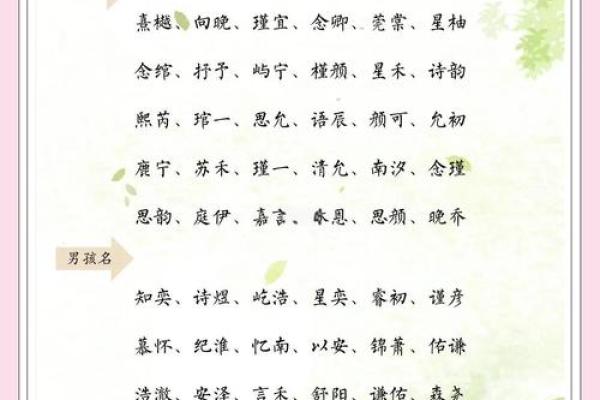 熹樾、向晚、瑾宜、念卿、莞棠、星柚
念绾、抒予、屿宁、槿颜、星禾、诗韵
熙芮、琯一、思允、语辰、颜可、允初
鹿宁、苏禾、瑾一、清允、南汐、念瑾
思韵、庭伊、嘉言、沐恩、思颜、晚乔
男孩名
知奕、诗煜、屹浩、星奕、睿初、谨彦
慕怀、纪淮、忆南、以安、锦萧、佑谦
浩澈、安泽、言禾、舒阳、谦佑、森尧